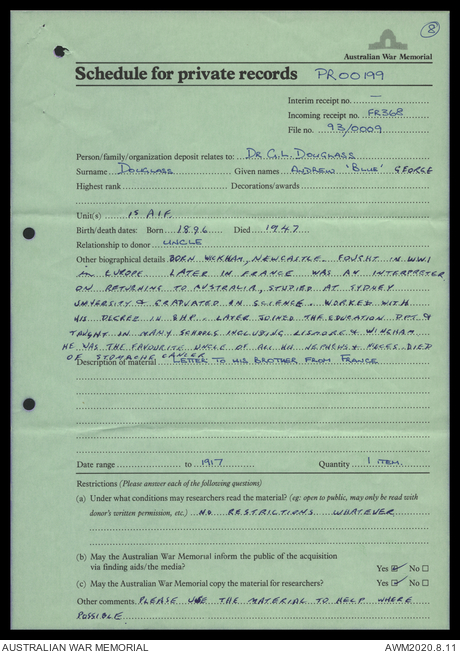 8
Australian War Memorial
Schedule for private records PR00199
Interim receipt no. —
Incoming receipt no. FR368
File no. 93/0009
Person/family/organization deposit relates to: Dr G.L. Douglass
Surname Douglass Given names Andrew 'Blue' George
Highest rank Decorations/awards
Unit(s) 1st AIF
Birth/death dates: Born 1896 Died 1947
Relationship to donor UNCLE
Other biographical details BORN WICKHAM, NEWCASTLE. FOUGHT IN WWI
in EUROPE LATER IN FRANCE WAS AN INTERPRETER
ON RETURNING TO AUSTRALIA, STUDIED AT SYDNEY
UNIVERSITY & GRADUATED IN SCIENCE. WORKED WITH
HIS DEGREE IN BHP. LATER JOINED THE EDUCATION DPT &
TAUGHT IN MANY SCHOOLS INCLUDING LISMORE & WINGHAM
HE WAS THE FAVOURITE UNCLE OF ALL HIS NEPHEWS & NIECES. DIED
OF STOMACHE CANCER
Description of material LETTER TO HIS BROTHER FROM FRANCE
Date range to 1917 Quantity 1 ITEM.
Restrictions (Please answer each of the following questions)
(a) Under what conditions may researchers read the material? (eg: open to public, may only be read with
donor's written permission, etc.) NO RESTRICTIONS WHATEVER
(b) May the Australian War Memorial inform the public of the acquisition
via finding aids/the media? Yes No
(c) May the Australian War Memorial copy the material for researchers? Yes No
Other comments PLEASE USE THE MATERIAL TO HELP WHERE
POSSIBLE
AUSTRALIAN WAR MEMORIAL AWM2020.8.11